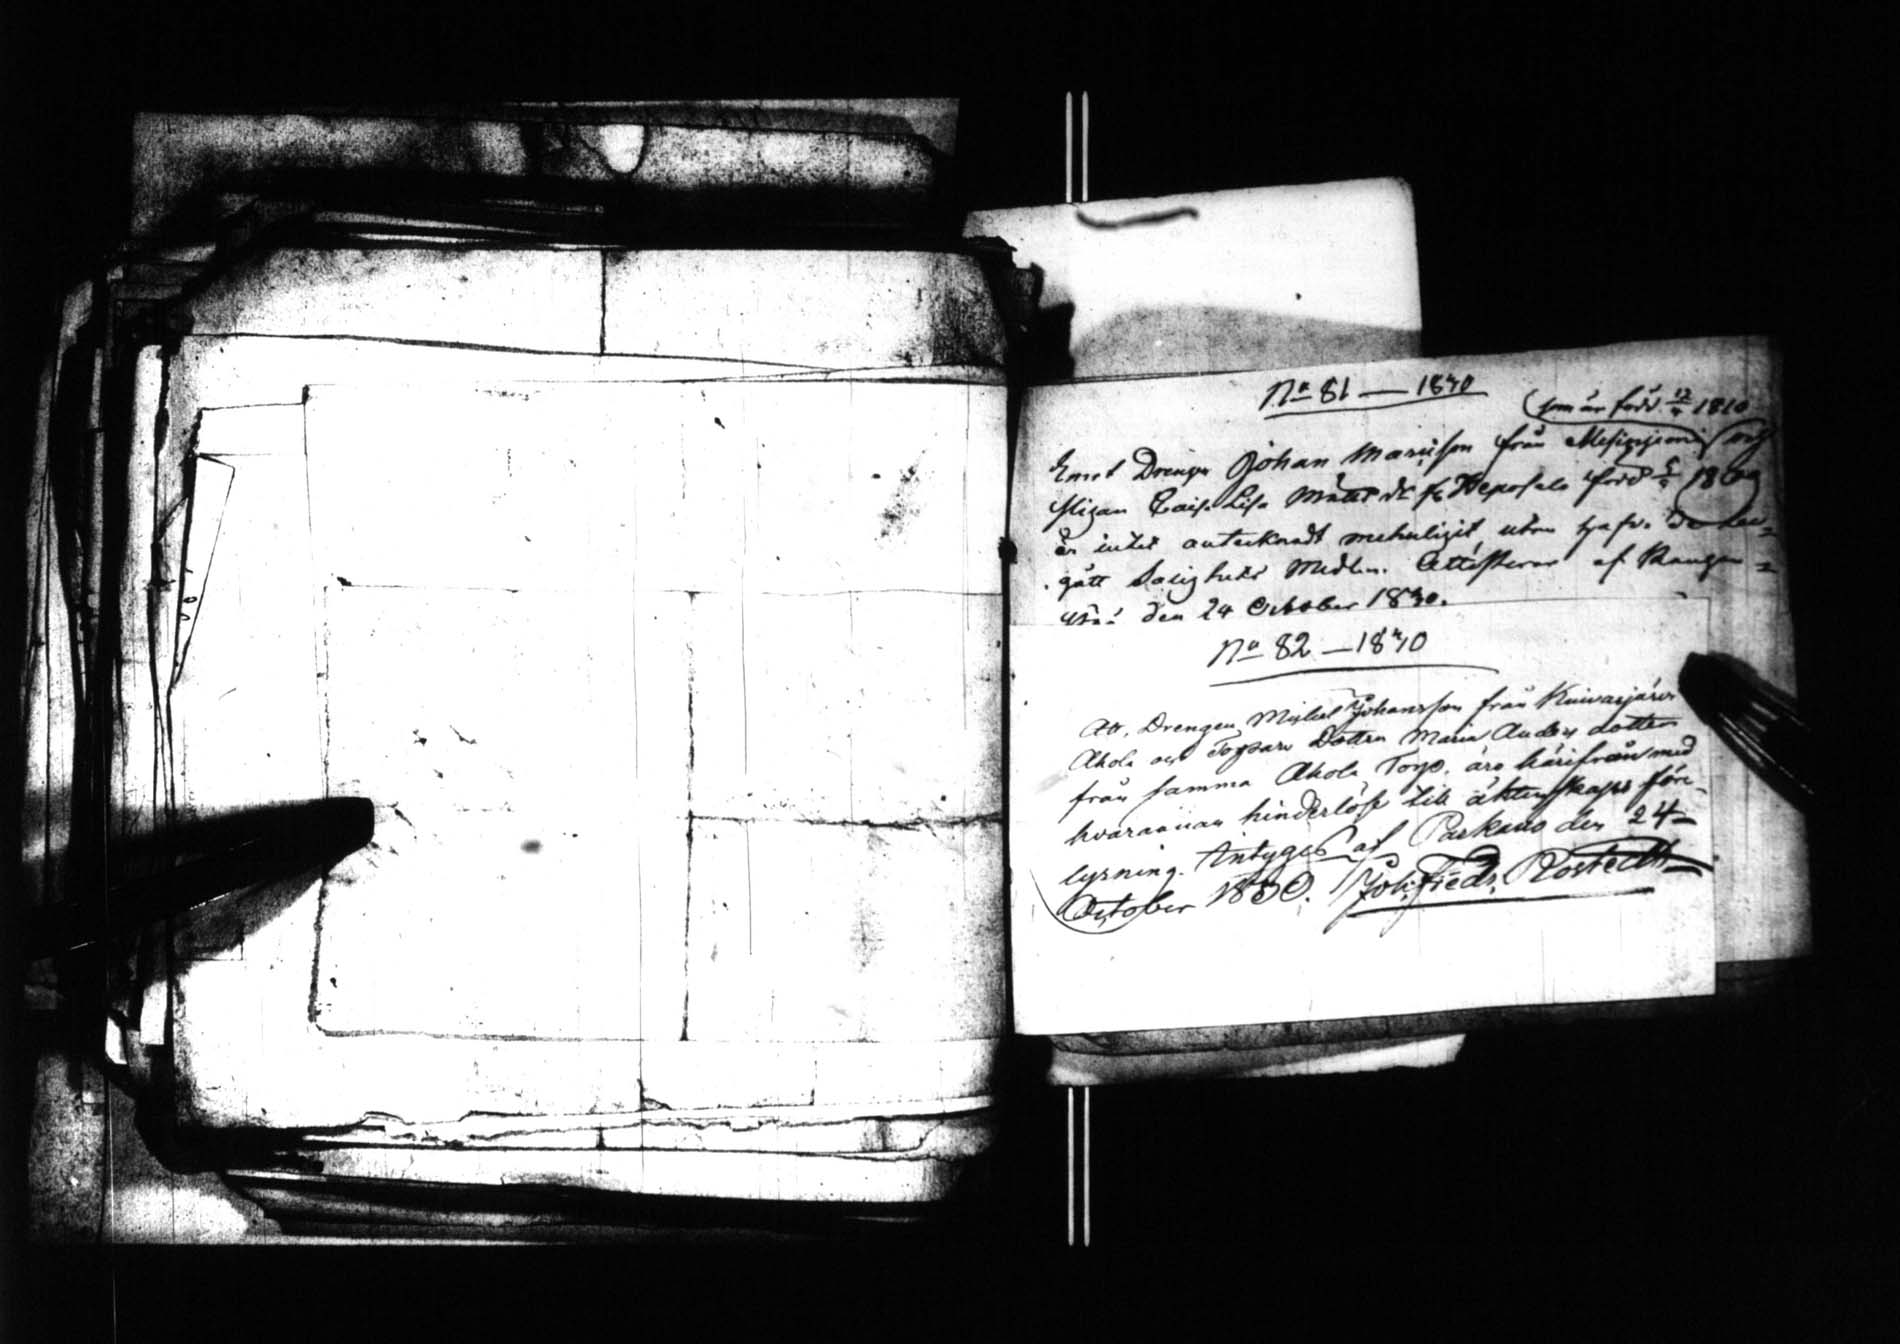 No 81 — 1830
(som är född 12/4 1810
Emot Drengen Johan Mariisson från
Pigan Caisa Lisa Matts dr fr Heposalo född 1809
är intet antecknadt utan hafva De be=
gått Salighets Medlen. Attesteras af Kangas=
den 24 October 1830.
No 82 — 1830
Att, Drengen Michel Johansson från Kuivasjärvi
Ahola och Torpare Dottren Maria Anders dotter
från samma Ahola Torp, äro härifrån med
hvarannan hinderlöse till äktenskaps för-
lysning. Intygas af Parkano den 24
October 1830. Joh: Fredr. Rostedt